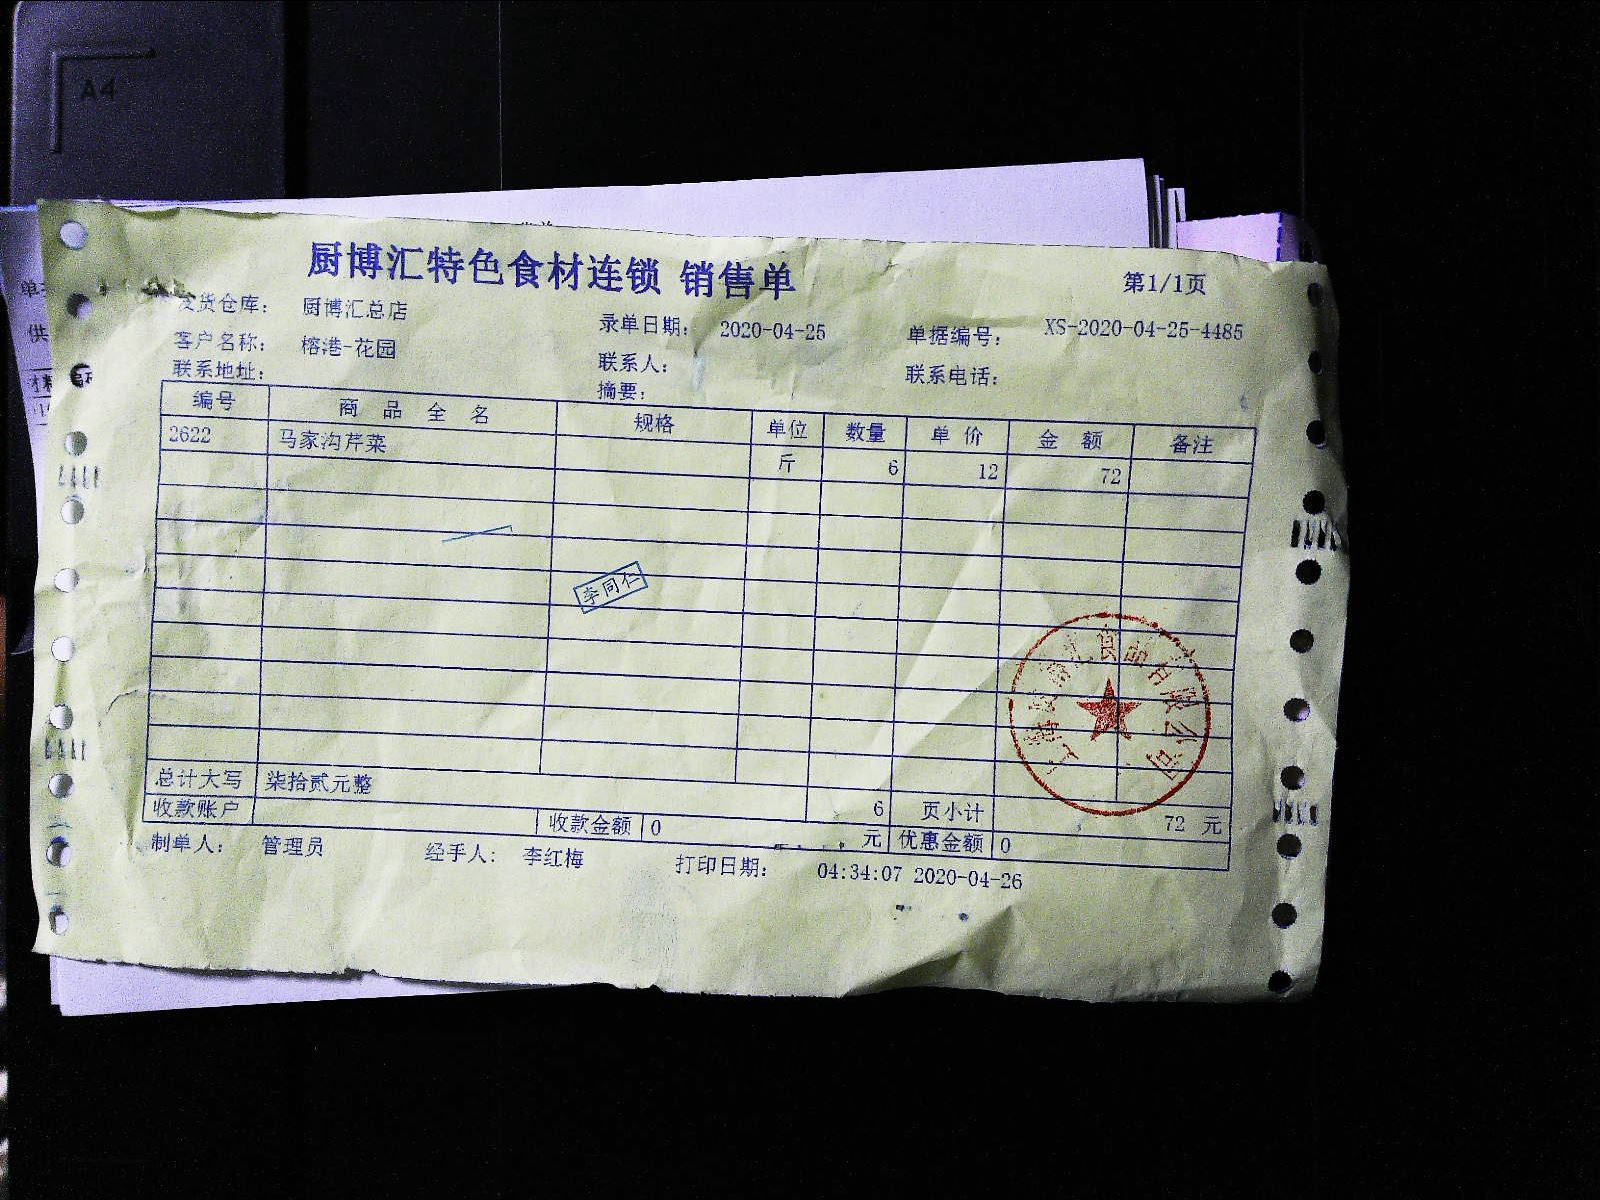 A4
厨博汇特色食材连锁 销售单
第1/1页
发货仓库： 厨博汇总店
录单日期： 2020-04-25 单据编号： XS-2020-04-25-4485
客户名称： 榕港-花园 联系人： 联系电话：
联系地址： 摘要：
编号 商品全名 规格 单位 数量 单价 金额 备注
2622 马家沟芹菜 斤 6 12 72
李同仁
总计大写 柒拾贰元整 6 页小计 72 元
收款账户 收款金额 0 元 优惠金额 0
制单人： 管理员 经手人： 李红梅 打印日期： 04:34:07 2020-04-26